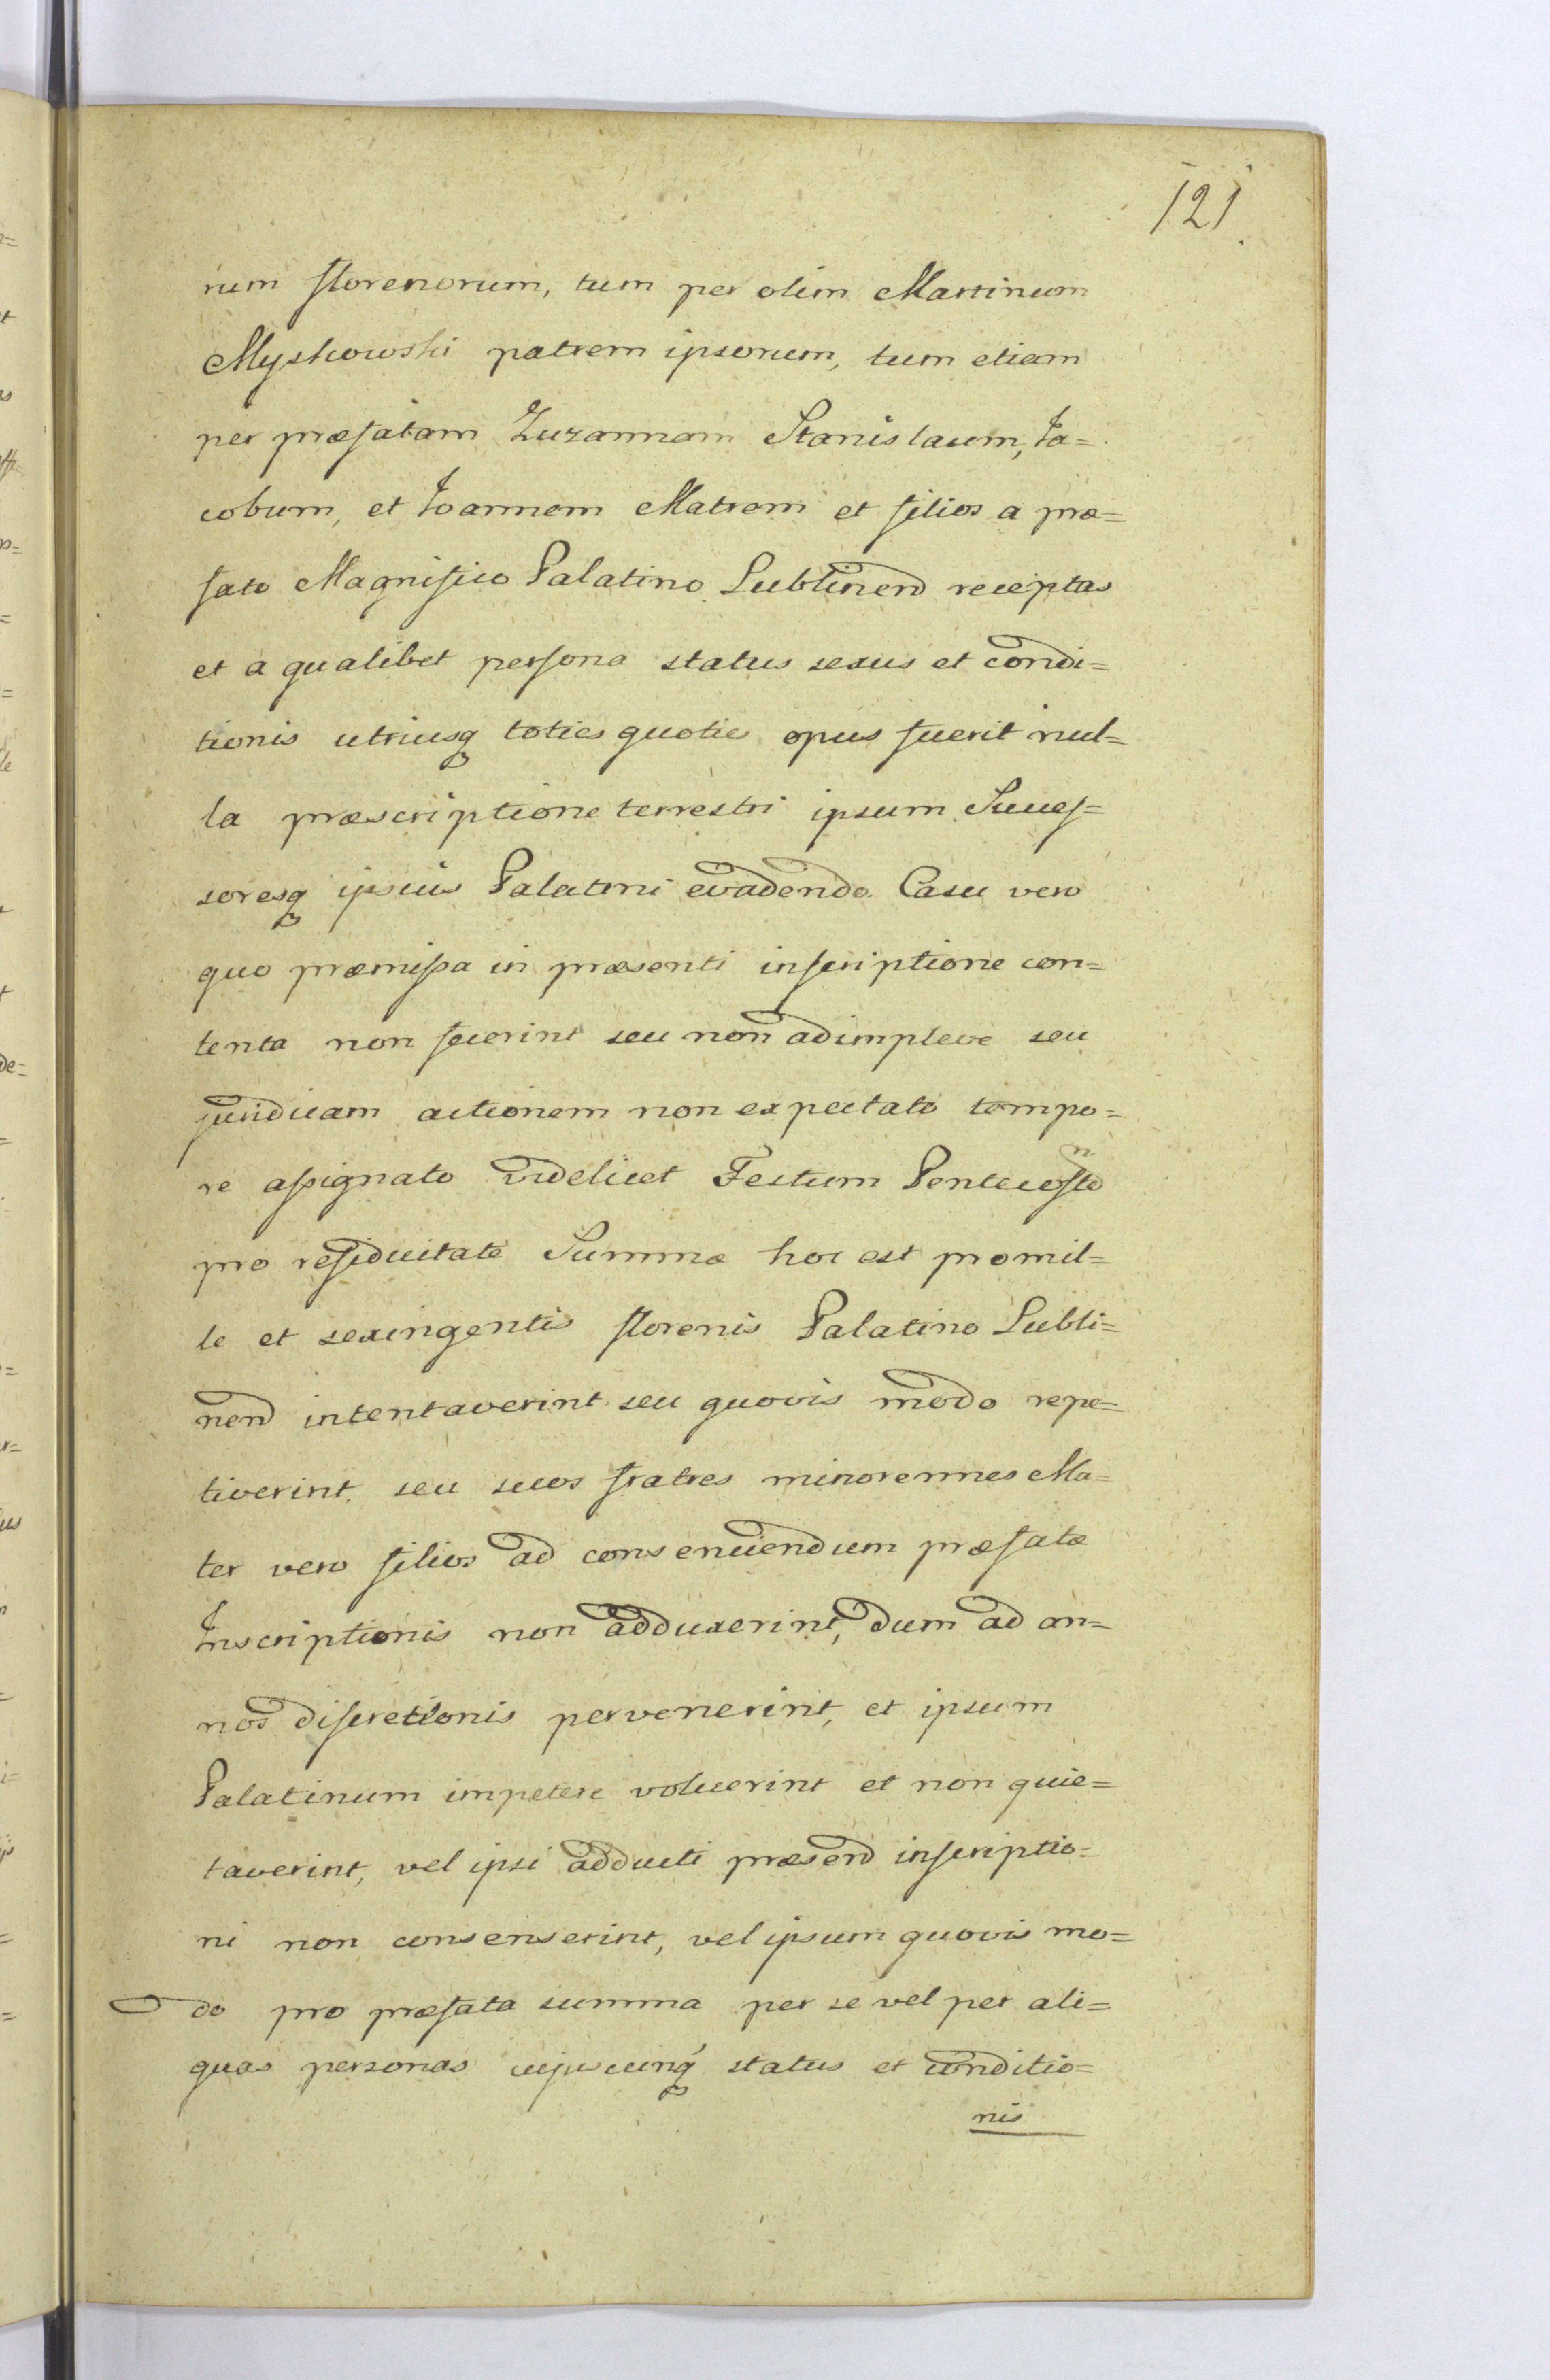 121
rum florenorum, tum per olim Martinum
Myskowski patrem ipsorum, tum etiam
per præfatam Zuzannam Stanislaum, Ia=
cobum, et Ioannem Matrem et filios a præ=
fato Magnifico Palatino Lublinen receptas
et a qualibet persona status sexus et condi=
tionis utriusq toties quoties opus fuerit nul=
la præscriptione terrestri ipsum Succes=
soresq ipsius Palatini evadendo. Casu vero
quo præmissa in præsenti inscriptione con=
tenta non fecerint seu non adimpleve seu
juridicam actionem non expectato tempo=
re assignato videlicet Festum Pentecosten
pro residuitate Summæ hoc est pro mil=
le et sexingentis florenis Palatino Lubli=
nen intentaverint seu quovis modo repe=
tiverint, seu suos fratres minorennes Ma=
ter vero filios ad consenciendum præfatæ
Inscriptionis non adduxerint, dum ad an=
nos discretionis pervenerint, et ipsum
Palatinum impetere voluerint et non quie=
taverint, vel ipsi adducti præsen inscriptio=
ni non consenserint, vel ipsum quovis mo=
do pro præfata summa per se vel per ali=
quas personas cujuscunq status et conditio=
nis